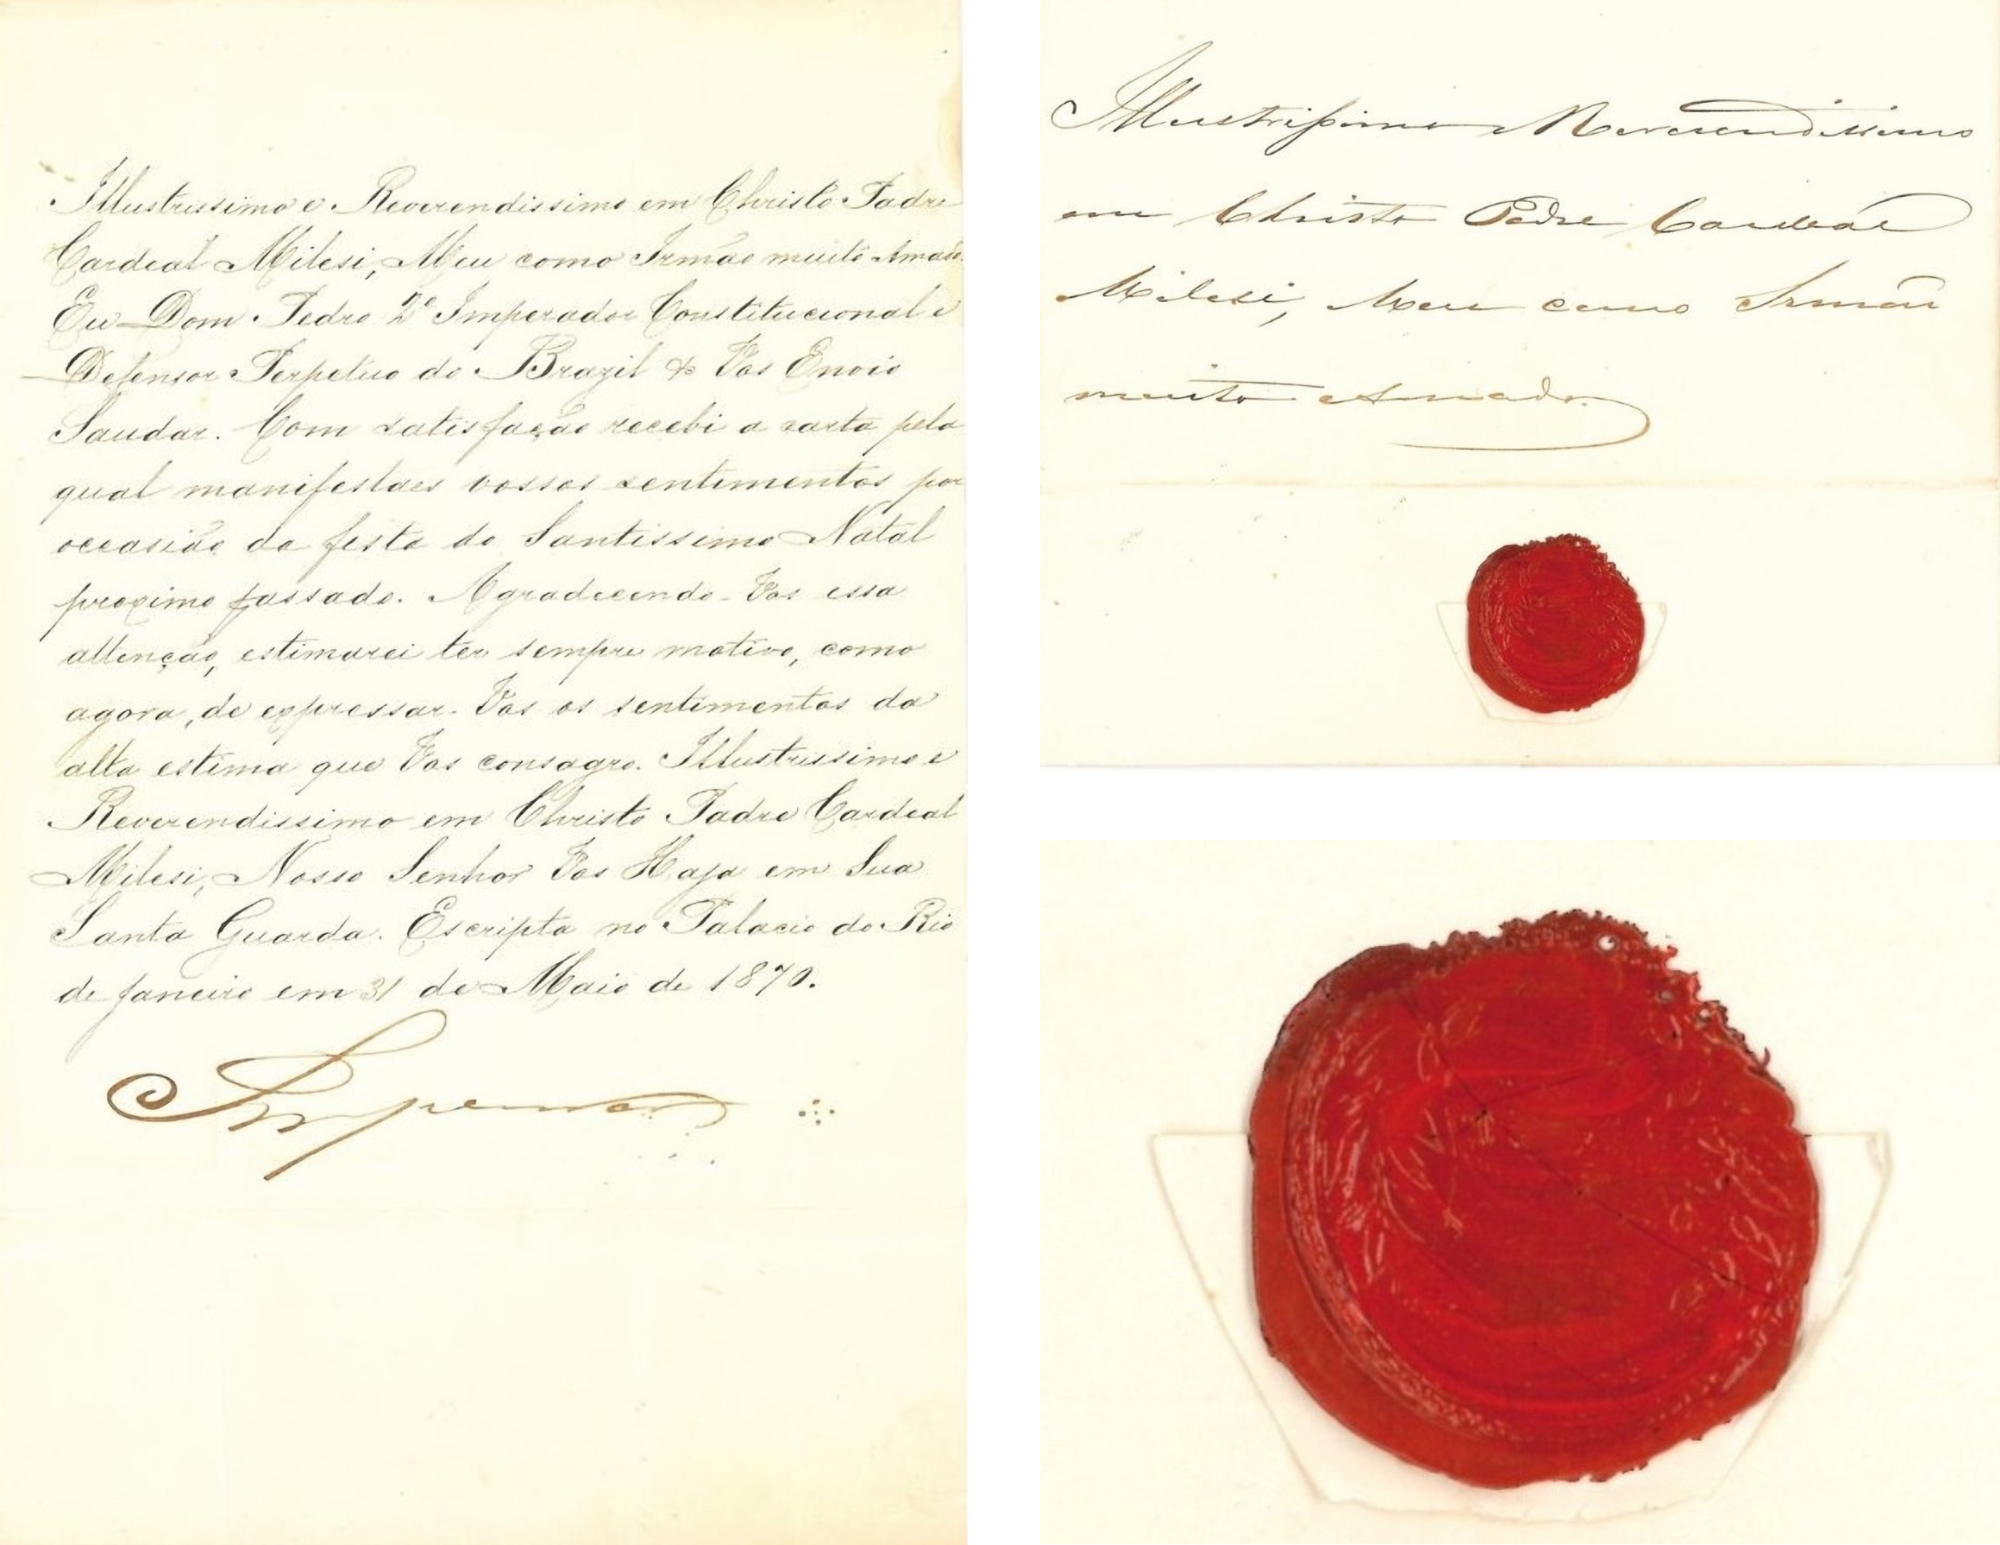 Illustrissimo e Reverendissimo em Christo Padre
Cardeal Milesi, Meu como Irmão muito Amado.
Eu Dom Pedro 2º Imperador Constitucional e
Defensor Perpetuo do Brazil & Vos Envio
Saudar. Com satisfação recebi a carta pela
qual manifestaes vossos sentimentos por
occasião da festa do Santissimo Natal
proximo passado. Agradecendo-Vos essa
attenção, estimarei ter sempre motivo, como
agora, de expressar-Vos os sentimentos da
alta estima que Vos consagro. Illustrissimo e
Reverendissimo em Christo Padre Cardeal
Milesi, Nosso Senhor Vos Haja em Sua
Santa Guarda. Escripta no Palacio do Rio
de Janeiro em 31 de Maio de 1870.
Imperador
Illustrissimo Reverendissimo
em Christo Padre Cardeal
Milesi, Meu como Irmão
muito Amado.